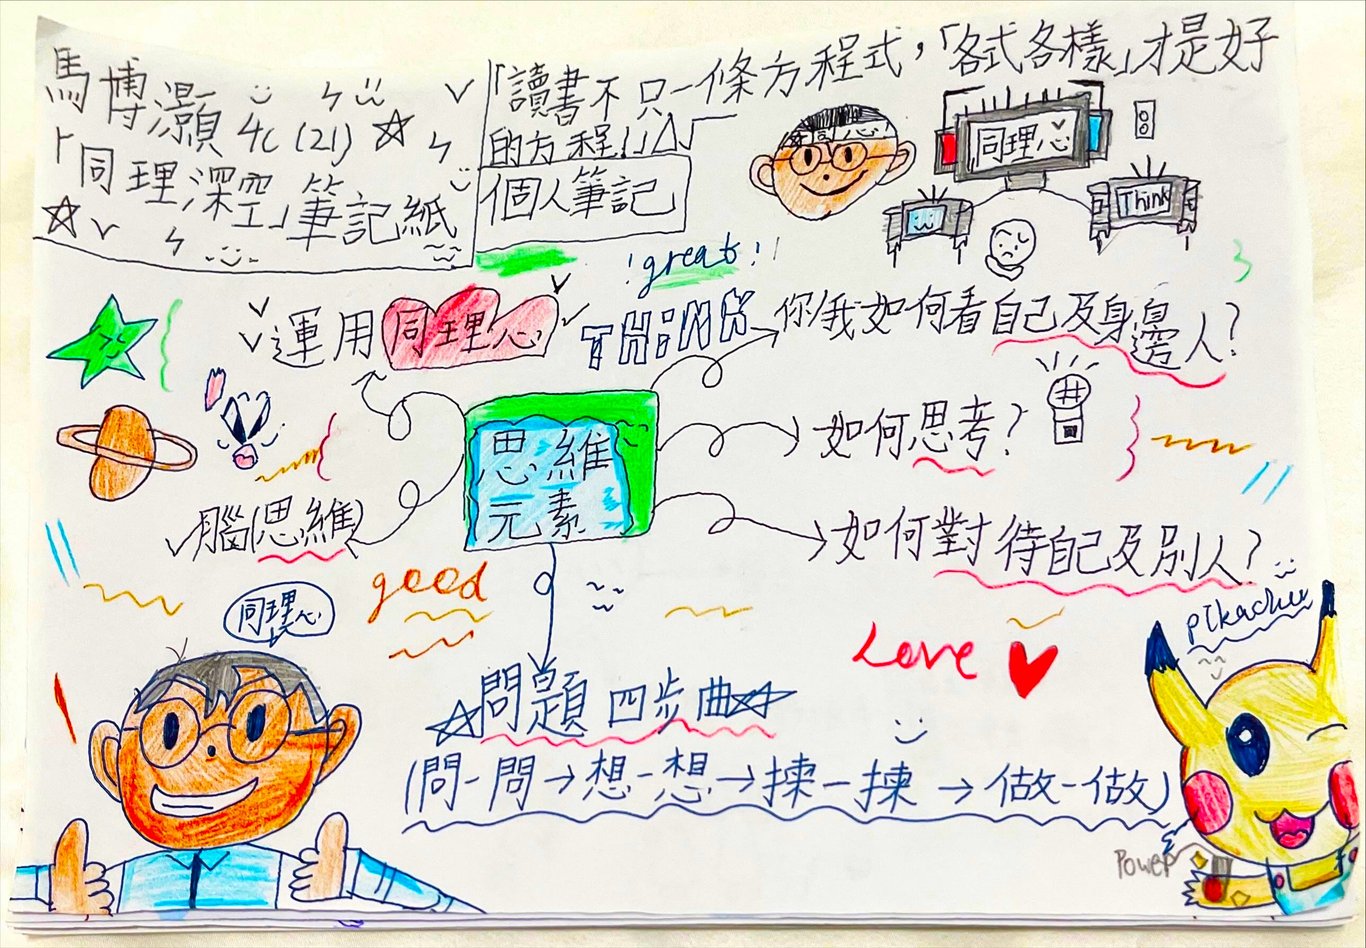 馬博灝 4C (21)
「同理深空」筆記紙
「讀書不只一條方程式，「各式各樣」才是好
的方程！」
個人筆記
同理心
同理心
Think
!great!
運用同理心
THiNK
你/我如何看自己及身邊人？
思維
元素
如何思考？
腦(思維)
如何對待自己及別人？
good
同理心
pikachu
Love
問題四步曲
(問一問→想一想→揀一揀→做一做)
Power